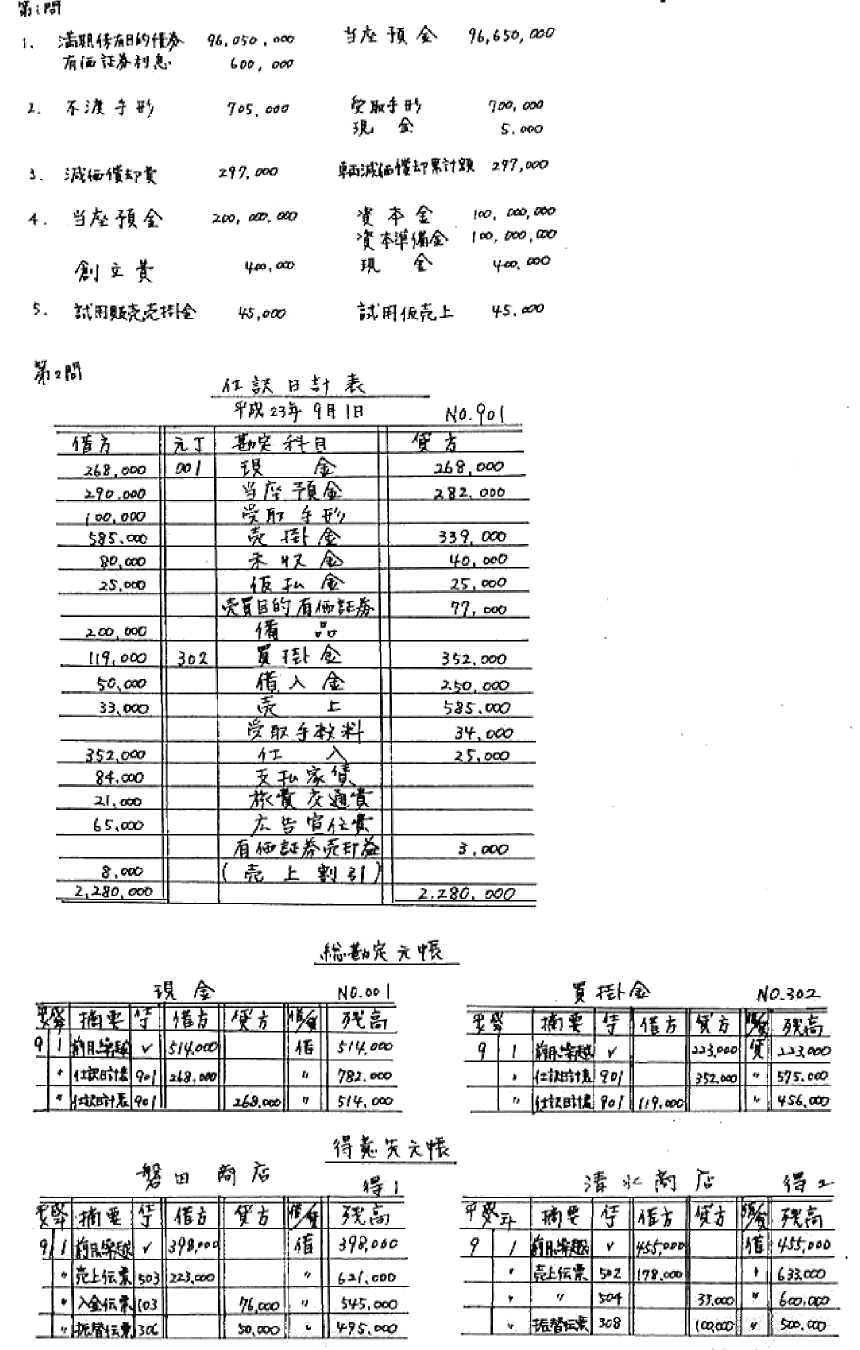 第1問
1. 満期保有目的債券 96,050,000 当座預金 96,650,000
有価証券利息 600,000
2. 不渡手形 705,000 受取手形 700,000
現金 5,000
3. 減価償却費 297,000 車輌減価償却累計額 297,000
4. 当座預金 200,000,000 資本金 100,000,000
資本準備金 100,000,000
創立費 400,000 現金 400,000
5. 試用販売売掛金 45,000 試用仮売上 45,000
第2問
仕訳日計表
平成23年9月1日 NO.901
借方 元丁 勘定科目 貸方
268,000 001 現金 268,000
290,000 当座預金 282,000
100,000 受取手形
585,000 売掛金 339,000
80,000 未収金 40,000
25,000 仮払金 25,000
売買目的有価証券 77,000
200,000 備品
119,000 302 買掛金 352,000
50,000 借入金 250,000
33,000 売上 585,000
受取手数料 34,000
352,000 仕入 25,000
84,000 支払家賃
21,000 旅費交通費
65,000 広告宣伝費
有価証券売却益 3,000
8,000 (売上割引)
2,280,000 2,280,000
総勘定元帳
現金 NO.001 買掛金 NO.302
摘要 仕丁 借方 貸方 借/貸 残高 摘要 仕丁 借方 貸方 借/貸 残高
9 1 前月繰越 ✓ 514,000 借 514,000 9 1 前月繰越 ✓ 223,000 貸 223,000
〃 仕訳日計表 901 268,000 〃 782,000 〃 仕訳日計表 901 352,000 〃 575,000
〃 仕訳日計表 901 268,000 〃 514,000 〃 仕訳日計表 901 119,000 〃 456,000
得意先元帳
磐田商店 得1 清水商店 得2
摘要 仕丁 借方 貸方 借/貸 残高 摘要 仕丁 借方 貸方 借/貸 残高
9 1 前月繰越 ✓ 398,000 借 398,000 9 1 前月繰越 ✓ 455,000 借 455,000
〃 売上伝票 503 223,000 〃 621,000 〃 売上伝票 502 178,000 〃 633,000
〃 入金伝票 103 76,000 〃 545,000 〃 〃 504 33,000 〃 600,000
〃 振替伝票 306 50,000 〃 495,000 〃 振替伝票 308 100,000 〃 500,000